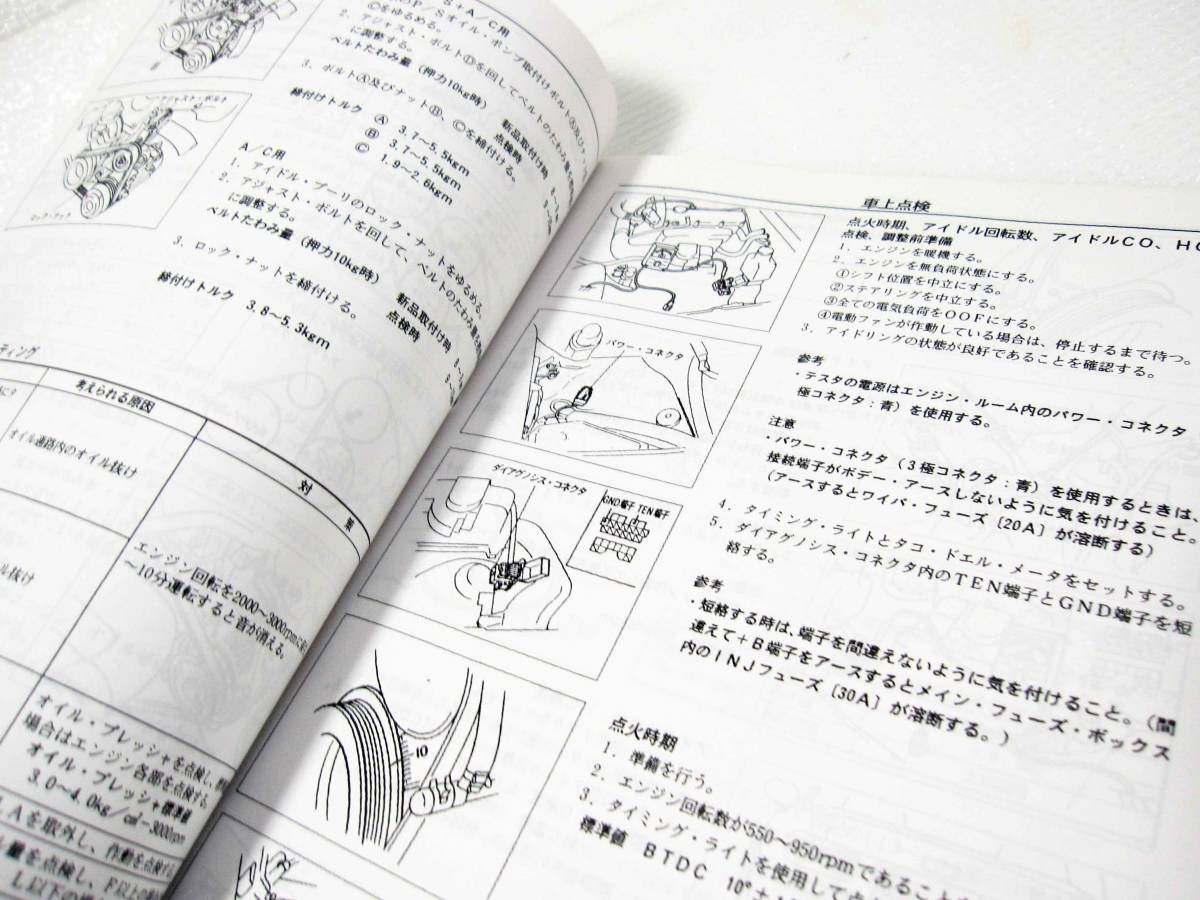 S+A/C用
P/Sオイル・ポンプ取付けボルトⒶ及びナッ
Ⓒをゆるめる。
2. アジャスト・ボルトⒹを回してベルトのたわみ量を
に調整する。
ベルトたわみ量(押力10kg時)
新品取付け時
点検時
3. ボルトⒶ及びナットⒷ、Ⓒを締付ける。
締付けトルク Ⓐ 3.7~5.5kgm
Ⓑ 3.7~5.5kgm
Ⓒ 1.9~2.6kgm
アジャスト・ボルト
ロック・ナット
A/C用
1. アイドル・プーリのロック・ナットをゆるめる。
2. アジャスト・ボルトを回して、ベルトのたわみ量を
に調整する。
ベルトたわみ量(押力10kg時)
新品取付け時
点検時
3. ロック・ナットを締付ける。
締付けトルク 3.8~5.3kgm
ティング
考えられる原因
対
オイル通路内のオイル抜け
エンジン回転を2000~3000rpmに
~10分運転すると音が消える。
ル抜け
オイル・プレッシャを点検し、
場合はエンジン各部を点検する。
オイル・プレッシャ標準値
3.0~4.0kg/c㎡-3000rpm
Aを取外し、作動を点検する。
ル量を点検し、F以上の
L以下の場
車上点検
点火時期、アイドル回転数、アイドルCO、HC
点検、調整前準備
1. エンジンを暖機する。
2. エンジンを無負荷状態にする。
①シフト位置を中立にする。
②ステアリングを中立する。
③全ての電気負荷をOOFにする。
④電動ファンが作動している場合は、停止するまで待つ。
3. アイドリングの状態が良好であることを確認する。
パワー・コネクタ
参考
・テスタの電源はエンジン・ルーム内のパワー・コネクタ
極コネクタ:青)を使用する。
注意
・パワー・コネクタ(3極コネクタ:青)を使用するときは、
接続端子がボデー・アースしないように気を付けること。
(アースするとワイパ・フューズ[20A]が溶断する)
ダイアグノシス・コネクタ
GND端子 TEN端子
4. タイミング・ライトとタコ・ドエル・メータをセットする。
5. ダイアグノシス・コネクタ内のTEN端子とGND端子を短
絡する。
参考
・短絡する時は、端子を間違えないように気を付けること。(間
違えて+B端子をアースするとメイン・フューズ・ボックス
内のINJフューズ[30A]が溶断する。)
10
点火時期
1. 準備を行う。
2. エンジン回転数が550~950rpmであること
3. タイミング・ライトを使用して点
標準値 BTDC 10°±